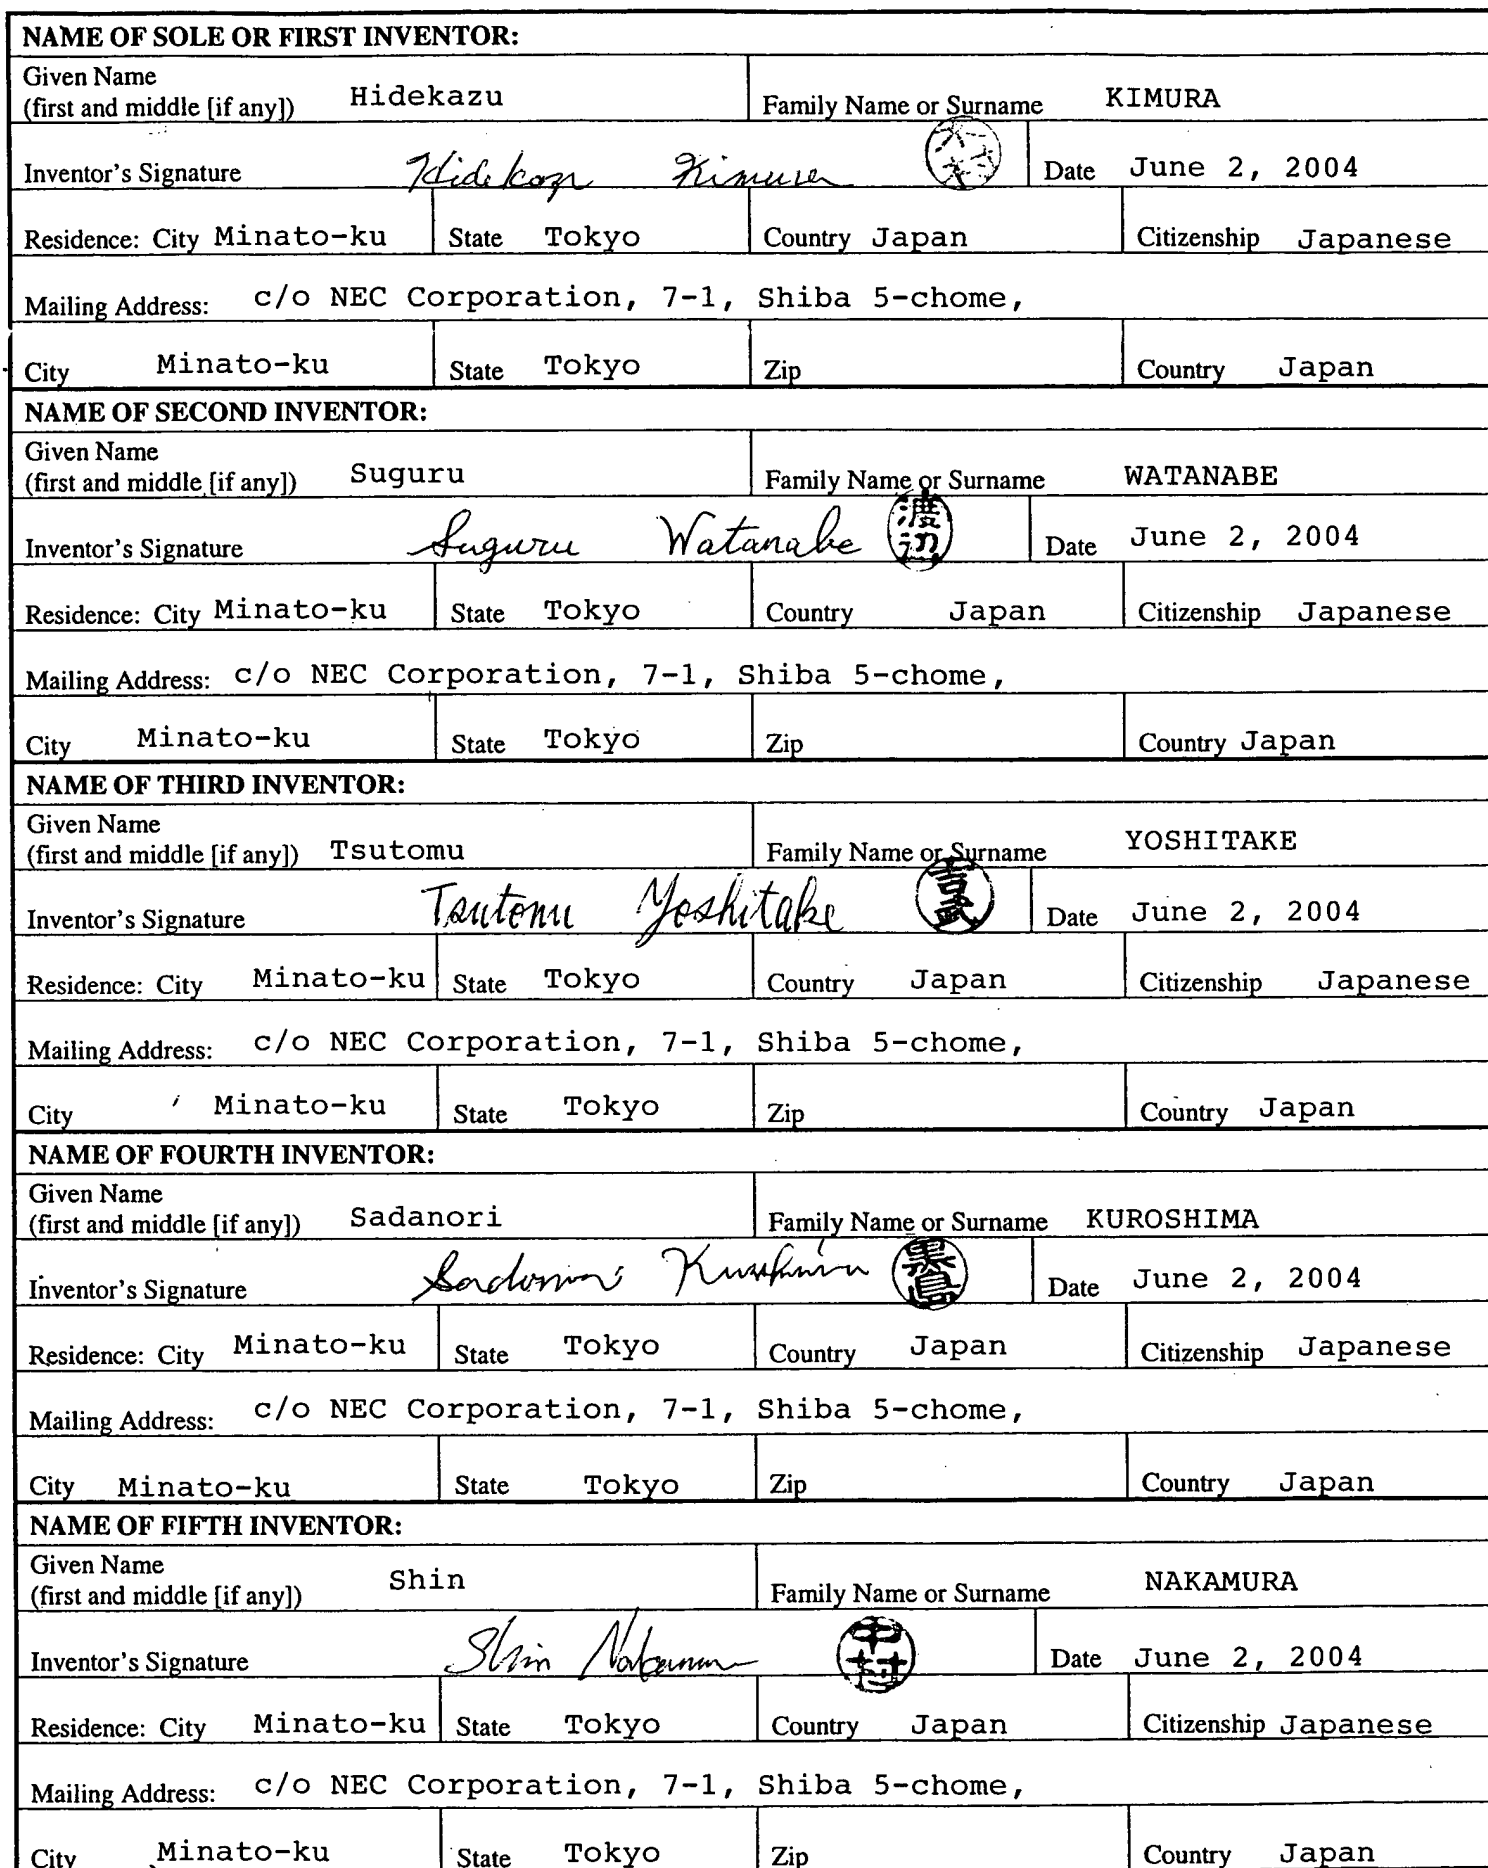 NAME OF SOLE OR FIRST INVENTOR:
Given Name
(first and middle [if any]) Hidekazu Family Name or Surname KIMURA
Inventor's Signature Hidekazu Kimura Date June 2, 2004
Residence: City Minato-ku State Tokyo Country Japan Citizenship Japanese
Mailing Address: c/o NEC Corporation, 7-1, Shiba 5-chome,
City Minato-ku State Tokyo Zip Country Japan
NAME OF SECOND INVENTOR:
Given Name
(first and middle [if any]) Suguru Family Name or Surname WATANABE
Inventor's Signature Suguru Watanabe 渡部 Date June 2, 2004
Residence: City Minato-ku State Tokyo Country Japan Citizenship Japanese
Mailing Address: c/o NEC Corporation, 7-1, Shiba 5-chome,
City Minato-ku State Tokyo Zip Country Japan
NAME OF THIRD INVENTOR:
Given Name
(first and middle [if any]) Tsutomu Family Name or Surname YOSHITAKE
Inventor's Signature Tsutomu Yoshitake 吉武 Date June 2, 2004
Residence: City Minato-ku State Tokyo Country Japan Citizenship Japanese
Mailing Address: c/o NEC Corporation, 7-1, Shiba 5-chome,
City Minato-ku State Tokyo Zip Country Japan
NAME OF FOURTH INVENTOR:
Given Name
(first and middle [if any]) Sadanori Family Name or Surname KUROSHIMA
Inventor's Signature Sadanori Kuroshima 黒島 Date June 2, 2004
Residence: City Minato-ku State Tokyo Country Japan Citizenship Japanese
Mailing Address: c/o NEC Corporation, 7-1, Shiba 5-chome,
City Minato-ku State Tokyo Zip Country Japan
NAME OF FIFTH INVENTOR:
Given Name
(first and middle [if any]) Shin Family Name or Surname NAKAMURA
Inventor's Signature Shin Nakamura 中村 Date June 2, 2004
Residence: City Minato-ku State Tokyo Country Japan Citizenship Japanese
Mailing Address: c/o NEC Corporation, 7-1, Shiba 5-chome,
City Minato-ku State Tokyo Zip Country Japan